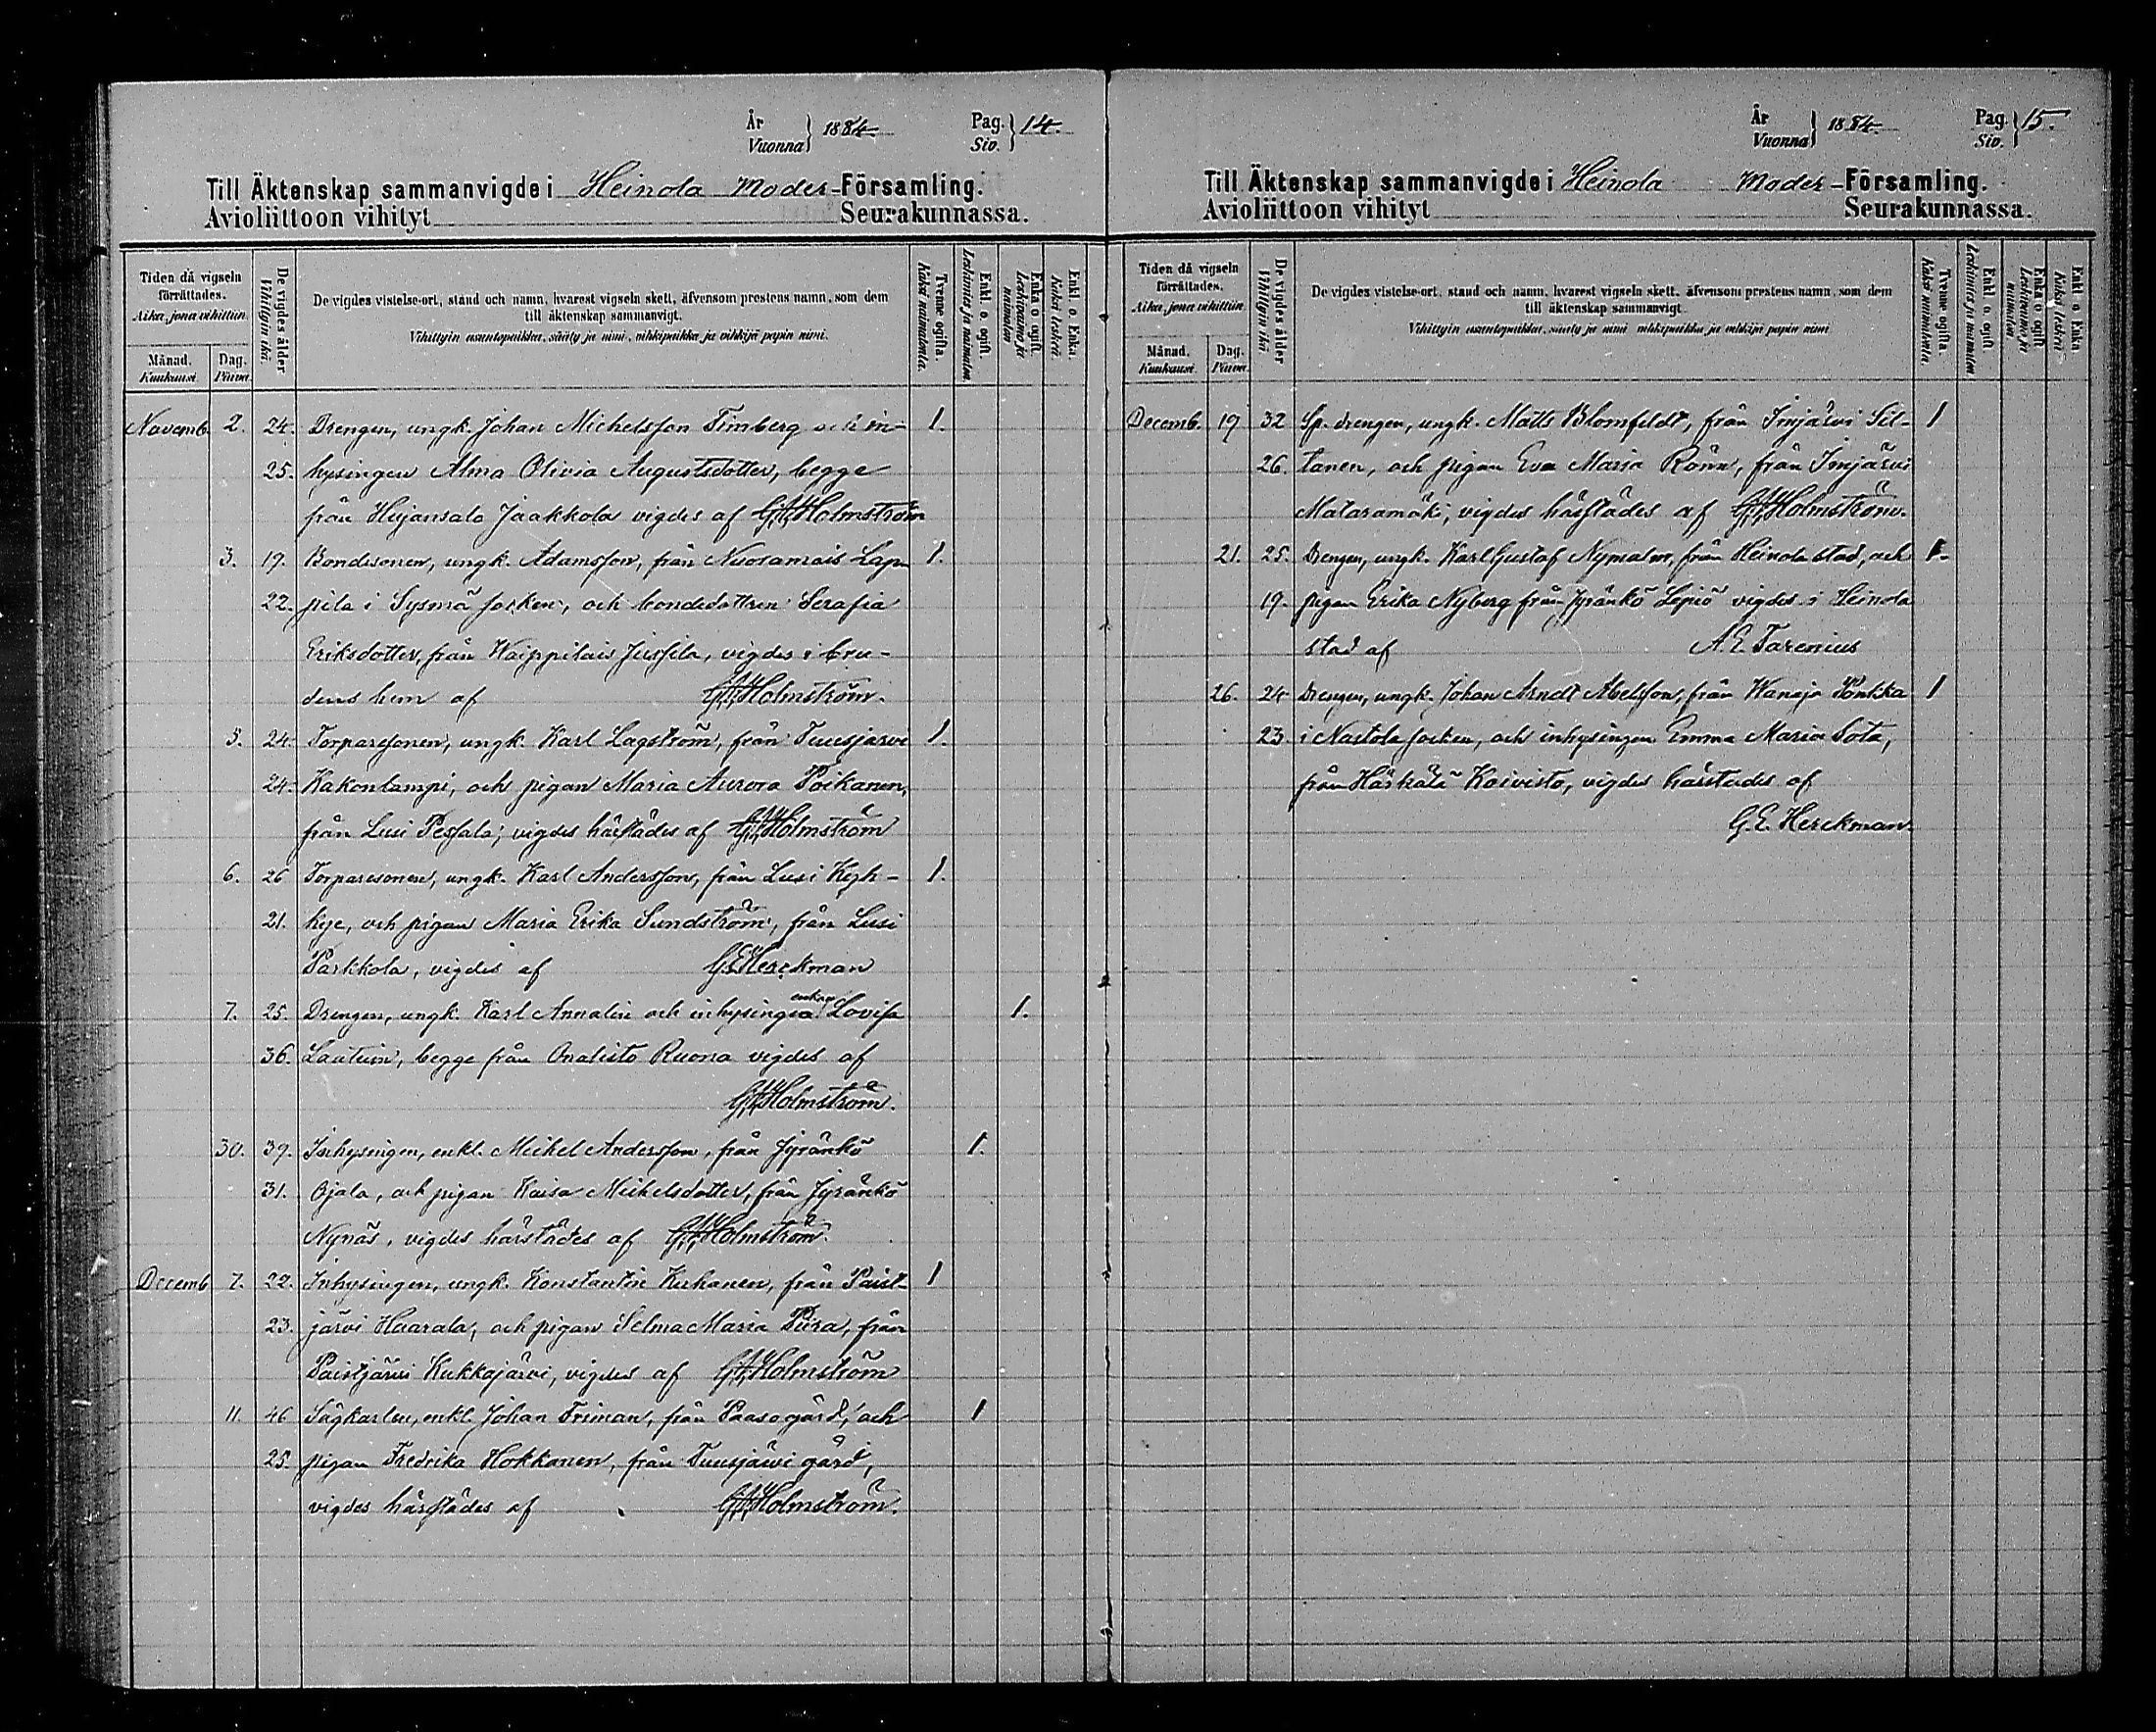 År
Vuonna } 1884. Pag.
Siv. } 14.
Till Äktenskap sammanvigde i Heinola Moder-Församling.
Avioliittoon vihityt Seurakunnassa.
Tiden då vigseln förrättades.
Aika, jona vihittiin.
Månad.
Kuukausi.
Dag.
Päivä.
De vigdes ålder
Vihittyin ikä.
De vigdes vistelse-ort, stånd och namn, hvarest vigseln skett, äfvensom prestens namn, som dem
till äktenskap sammanvigt.
Vihittyin asuntopaikka, sääty ja nimi, vihkipaikka ja vihkijä papin nimi.
Tvenne ogifta.
Kaksi naimatonta.
Enkl. o. ogift.
Leskimies ja naimaton.
Enka o. ogift.
Leskivaimo ja naimaton
Enkl. o. Enka.
Kaksi leskeä
Novemb. 2. 24. Drengen, ungk. Johan Michelsson Timberg och in- 1.
25. hysingen Alma Olivia Augustsdotter, begge
från Heijansalo Jaakkola vigdes af G.A. Holmström
3. 19. Bondesonen, ungk. Adamsson, från Nuoramais Lap- 1.
22. pila i Sysmä socken, och bondedottren Serafia
Eriksdotter, från Waippilais Jussila, vigdes i bru-
dens hem af G.A. Holmström.
5. 24. Torparesonen, ungk. Karl Lagström, från Tuusjärvi 1.
24. Kakonlampi, och pigan Maria Aurora Poikanen,
från Lusi Pessala; vigdes härstädes af G.A. Holmström
6. 26 Torparesonen, ungk. Karl Andersson, från Lusi Keyh- 1.
21. kye, och pigan Maria Erika Sundström, från Lusi
Parkkola, vigdes af G.E. Herckman
7. 25. Drengen, ungk. Karl Annalin och inhysinge enkan Lovisa 1.
36. begge från Onalisto Ruona vigdes af
G.A. Holmström.
30. 39. Inhysingen, enkl. Mickel Andersson, från Jyränkö 1.
31. Ojala, och pigan Kaisa Michelsdotter, från Jyränkö
Nynäs, vigdes härstädes af G.A. Holmström.
Decemb. 7. 22. Inhysingen, ungk. Konstantin Kuhanen, från Paist- 1
23. järvi Haarala, och pigan Selma Maria Pura, från
Paistjärvi Kukkajärvi, vigdes af G.A. Holmström
11. 46 Sågkarlen, enkl. Johan Friman, från Paaso gård, och 1
25. pigan Fredrika Hokkanen, från Tuusjärvi gård,
vigdes härstädes af G.A. Holmström.
År
Vuonna } 1884. Pag.
Siv. } 15.
Till Äktenskap sammanvigde i Heinola Moder-Församling.
Avioliittoon vihityt Seurakunnassa.
Tiden då vigseln förrättades.
Aika, jona vihittiin.
Månad.
Kuukausi.
Dag.
Päivä.
De vigdes ålder
Vihittyin ikä.
De vigdes vistelse-ort, stånd och namn, hvarest vigseln skett, äfvensom prestens namn, som dem
till äktenskap sammanvigt.
Vihittyin asuntopaikka, sääty ja nimi vihkipaikka ja vihkijä papin nimi
Tvenne ogifta.
Kaksi naimatonta.
Enkl. o. ogift.
Leskimies ja naimaton
Enka o. ogift
Leskivaimo ja naimaton
Enkl. o. Enka.
Kaksi leskeä
Decemb. 19 32 Sp. drengen, ungk. Matts Blomfeldt, från Imjärvi Sil- 1
26. tanen, och pigan Eva Maria Rönn, från Imjärvi
Mataramäki, vigdes härstädes af G.A. Holmström.
21. 25. Drengen, ungk. Karl Gustaf Nymalm, från Heinola stad, och 1.
19. pigan Erika Nyberg från Jyränkö Lepiö vigdes i Heinola
stad af A.E. Tarenius
26. 24 Drengen, ungk. Johan Arndt Abelsson, från Wanaja Pönkkä 1
23. i Nastola socken, och inhysingen Emma Maria Sota,
från Härkälä Koivisto, vigdes härstädes af
G.E. Herckman.